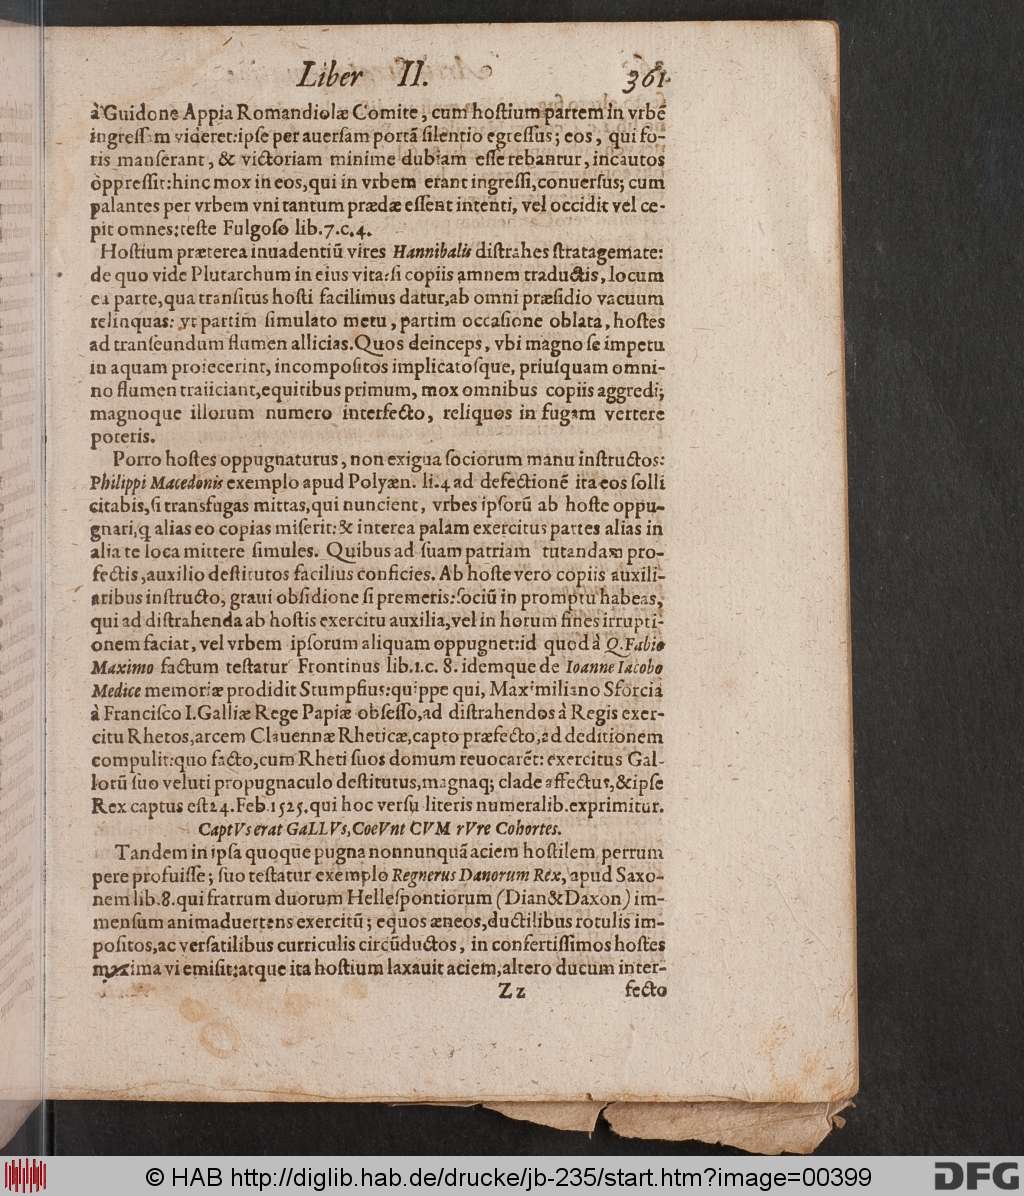 Liber II. 361
à Guidone Appia Romandiolæ Comite, cum hoſtium partem in vrbē
ingreſſam videret: ipſe per auerſam portā ſilentio egreſſus; eos, qui fo-
ris manſerant, & victoriam minime dubiam eſſe rebantur, incautos
oppreſſit: hinc mox in eos, qui in vrbem erant ingreſſi, conuerſus; cum
palantes per vrbem vni tantum prædæ eſſent intenti, vel occidit vel ce-
pit omnes: teſte Fulgoſo lib. 7. c. 4.
Hoſtium præterea inuadentiū vires Hannibalis diſtrahes ſtratagemate:
de quo vide Plutarchum in eius vita: ſi copiis amnem traductis, locum
ea parte, qua tranſitus hoſti facilimus datur, ab omni præſidio vacuum
relinquas: vt partim ſimulato metu, partim occaſione oblata, hoſtes
ad tranſeundum flumen allicias. Quos deinceps, vbi magno ſe impetu
in aquam proiecerint, incompoſitos implicatoſque, priuſquam omni-
no flumen traiiciant, equitibus primum, mox omnibus copiis aggredi;
magnoque illorum numero interfecto, reliquos in fugam vertere
poteris.
Porro hoſtes oppugnaturus, non exigua ſociorum manu inſtructos:
Philippi Macedonis exemplo apud Polyæn. li. 4 ad defectionē ita eos ſolli
citabis, ſi transfugas mittas, qui nuncient, vrbes ipſorū ab hoſte oppu-
gnari, q alias eo copias miſerit: & interea palam exercitus partes alias in
alia te loca mittere ſimules. Quibus ad ſuam patriam tutandam pro-
fectis, auxilio deſtitutos facilius conficies. Ab hoſte vero copiis auxili-
aribus inſtructo, graui obſidione ſi premeris: ſociū in promptu habeas,
qui ad diſtrahenda ab hoſtis exercitu auxilia, vel in horum fines irrupti-
onem faciat, vel vrbem ipſorum aliquam oppugnet: id quod à Q. Fabio
Maximo factum teſtatur Frontinus lib. 1. c. 8. idemque de Ioanne Iacobo
Medice memoriæ prodidit Stumpfius: quippe qui, Maximiliano Sforcia
à Franciſco I. Galliæ Rege Papiæ obſeſſo, ad diſtrahendos à Regis exer-
citu Rhetos, arcem Clauennæ Rheticæ, capto præfecto, ad deditionem
compulit: quo facto, cum Rheti ſuos domum reuocarēt: exercitus Gal-
lorū ſuo veluti propugnaculo deſtitutus, magnaq; clade affectus, & ipſe
Rex captus eſt 24. Feb. 1525. qui hoc verſu literis numeralib. exprimitur.
CaptVs erat GaLLVs, CoeVnt CVM rVre Cohortes.
Tandem in ipſa quoque pugna nonnunquā aciem hoſtilem perrum
pere profuiſſe; ſuo teſtatur exemplo Regnerus Danorum Rex, apud Saxo-
nem lib. 8. qui fratrum duorum Helleſpontiorum (Dian & Daxon) im-
menſum animaduertens exercitū; equos æneos, ductilibus rotulis im-
poſitos, ac verſatilibus curriculis circūductos, in confertiſſimos hoſtes
maxima vi emiſit: atque ita hoſtium laxauit aciem, altero ducum inter-
Zz fecto
© HAB http://diglib.hab.de/drucke/jb-235/start.htm?image=00399
DFG